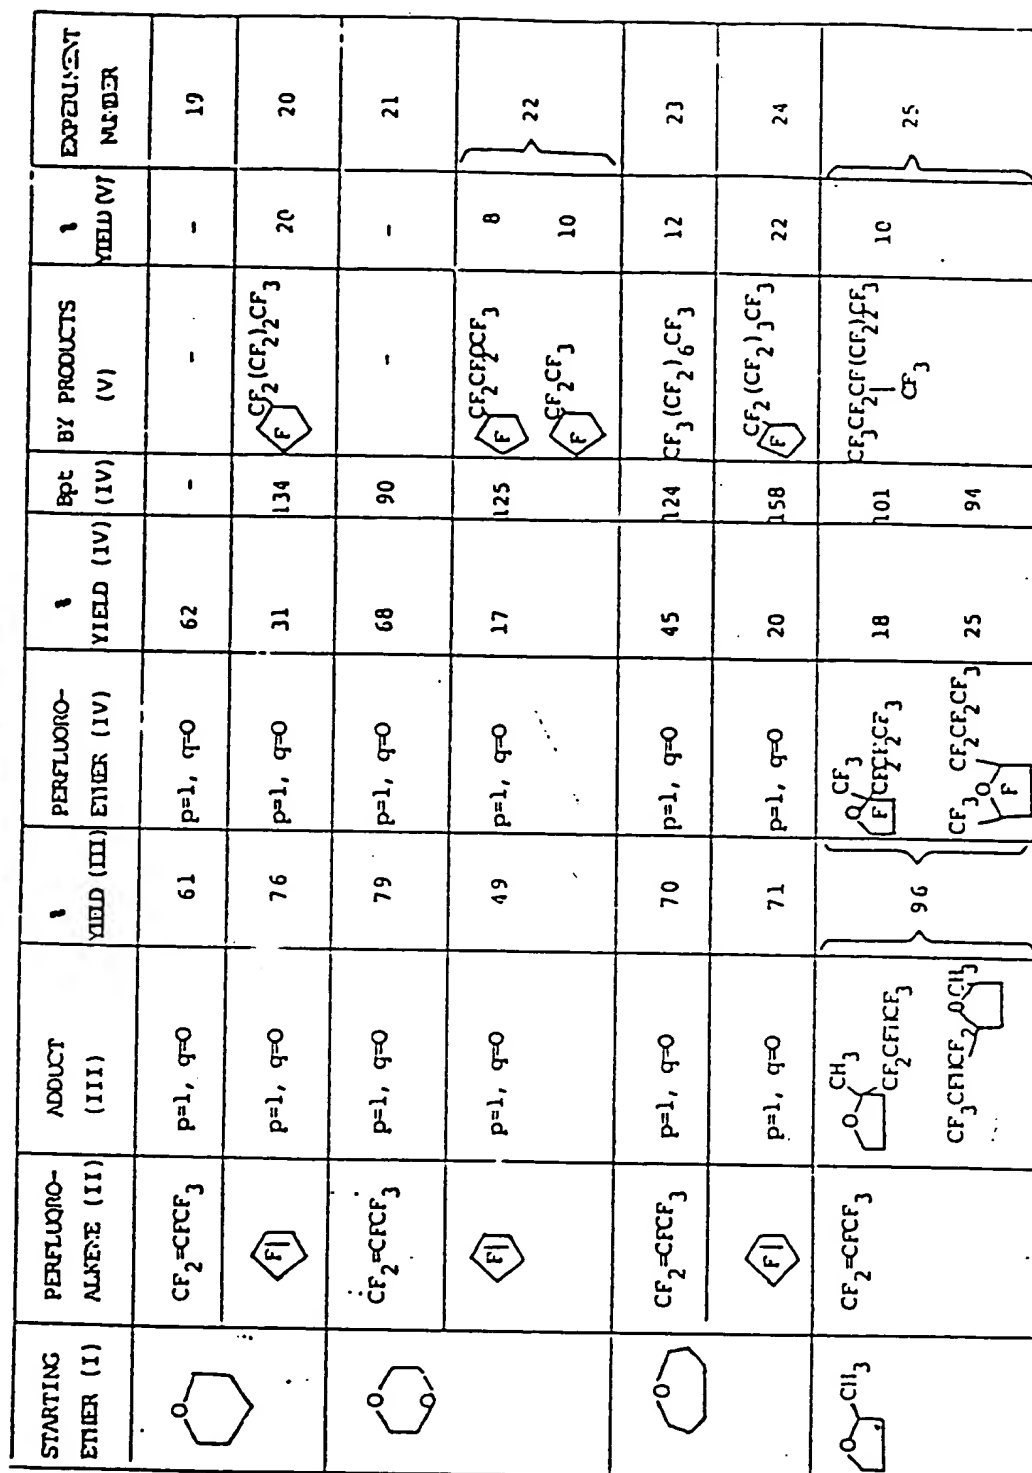 STARTING ETHER (I) | PERFLUORO-ALKENE (II) | ADDUCT (III) | % YIELD (III) | PERFLUORO-ETHER (IV) | % YIELD (IV) | Bpt (IV) | BY PRODUCTS (V) | % YIELD (V) | EXPERIMENT NUMBER
O | CF2=CFCF3 | p=1, q=0 | 61 | p=1, q=0 | 62 | - | - | - | 19
F | p=1, q=0 | 76 | p=1, q=0 | 31 | 134 | F CF2(CF2)2CF3 | 20 | 20
O O | CF2=CFCF3 | p=1, q=0 | 79 | p=1, q=0 | 68 | 90 | - | - | 21
F | p=1, q=0 | 49 | p=1, q=0 | 17 | 125 | F CF2CF2OCF3 | 8 | 22
F CF2CF3 | 10
O | CF2=CFCF3 | p=1, q=0 | 70 | p=1, q=0 | 45 | 124 | CF3(CF2)6CF3 | 12 | 23
F | p=1, q=0 | 71 | p=1, q=0 | 20 | 158 | F CF2(CF2)3CF3 | 22 | 24
O CH3 | CF2=CFCF3 | O CH3 CF2CFHCF3 | 96 | O F CF3 CF2CF2CF3 | 18 | 101 | CF3CF2CF(CF2)2CF3 CF3 | 10 | 25
CF3CFHCF2 O CH3 | CF3 O F CF2CF2CF3 | 25 | 94